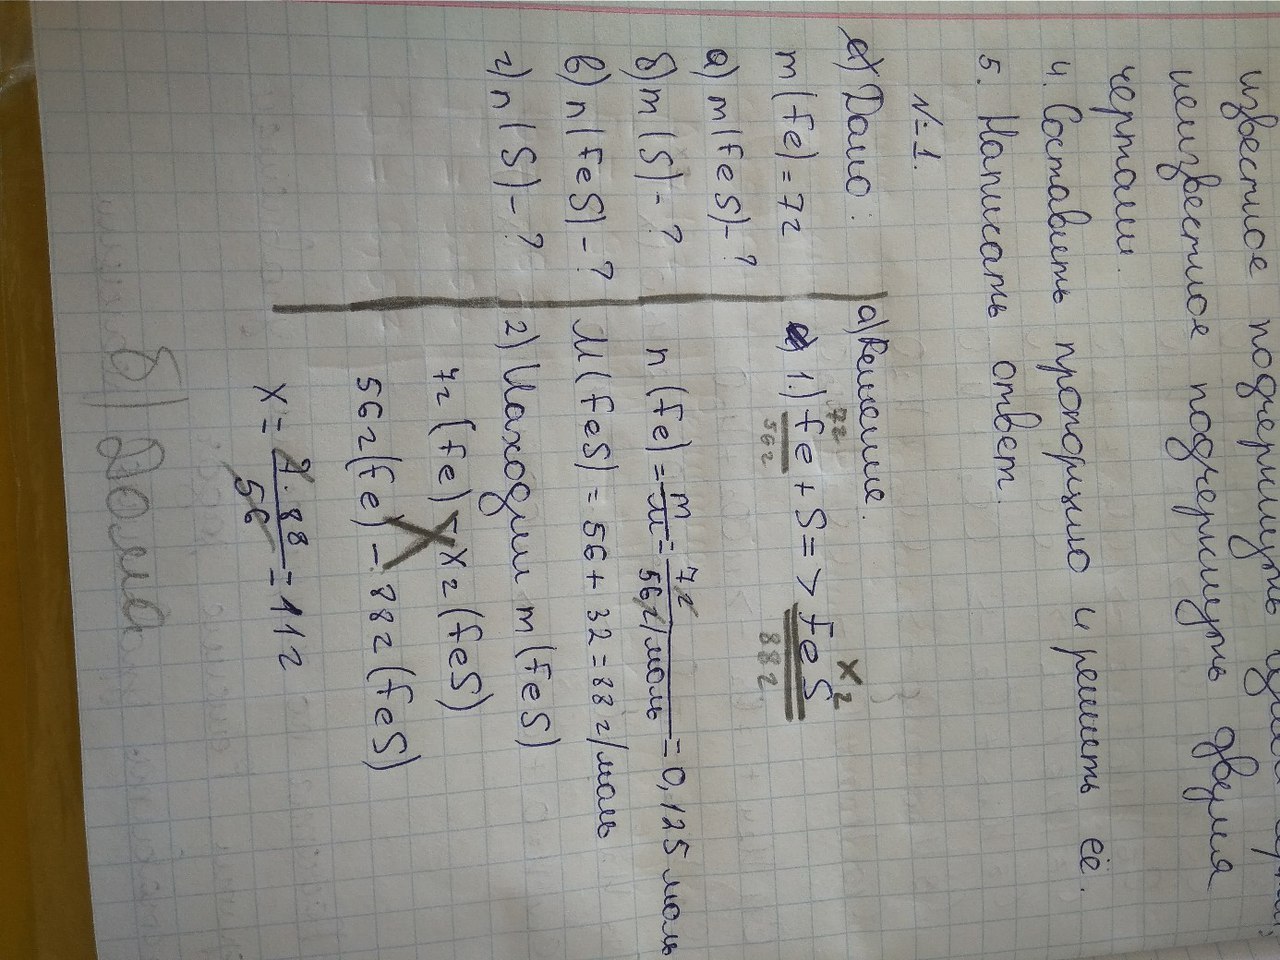 известное подчеркнуть
неизвестное подчеркнуть двумя
чертами.
4. Составить пропорцию и решить её.
5. Написать ответ.
№ 1.
Дано:
m(Fe) = 7г
а) m(FeS) - ?
б) m(S) - ?
в) n(FeS) - ?
г) n(S) - ?
а) Решение.
7г x г
1.) Fe + S => FeS
56г 88г
n(Fe) = m/M = 7г/56г/моль = 0,125 моль
M(FeS) = 56 + 32 = 88 г/моль
2) Находим m(FeS)
7г(Fe) - x г(FeS)
56г(Fe) - 88г(FeS)
x = 7·88/56 = 11г
б) Дано